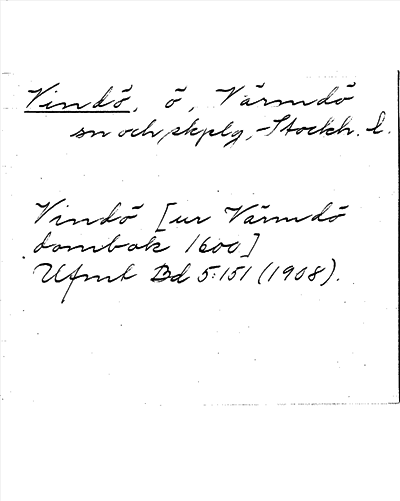 Vindö, ö, Värmdö
sn och skplg, Stockh. l.
Vindö [ur Värmdö
dombok 1600]
Ufmt Bd 5:151 (1908).